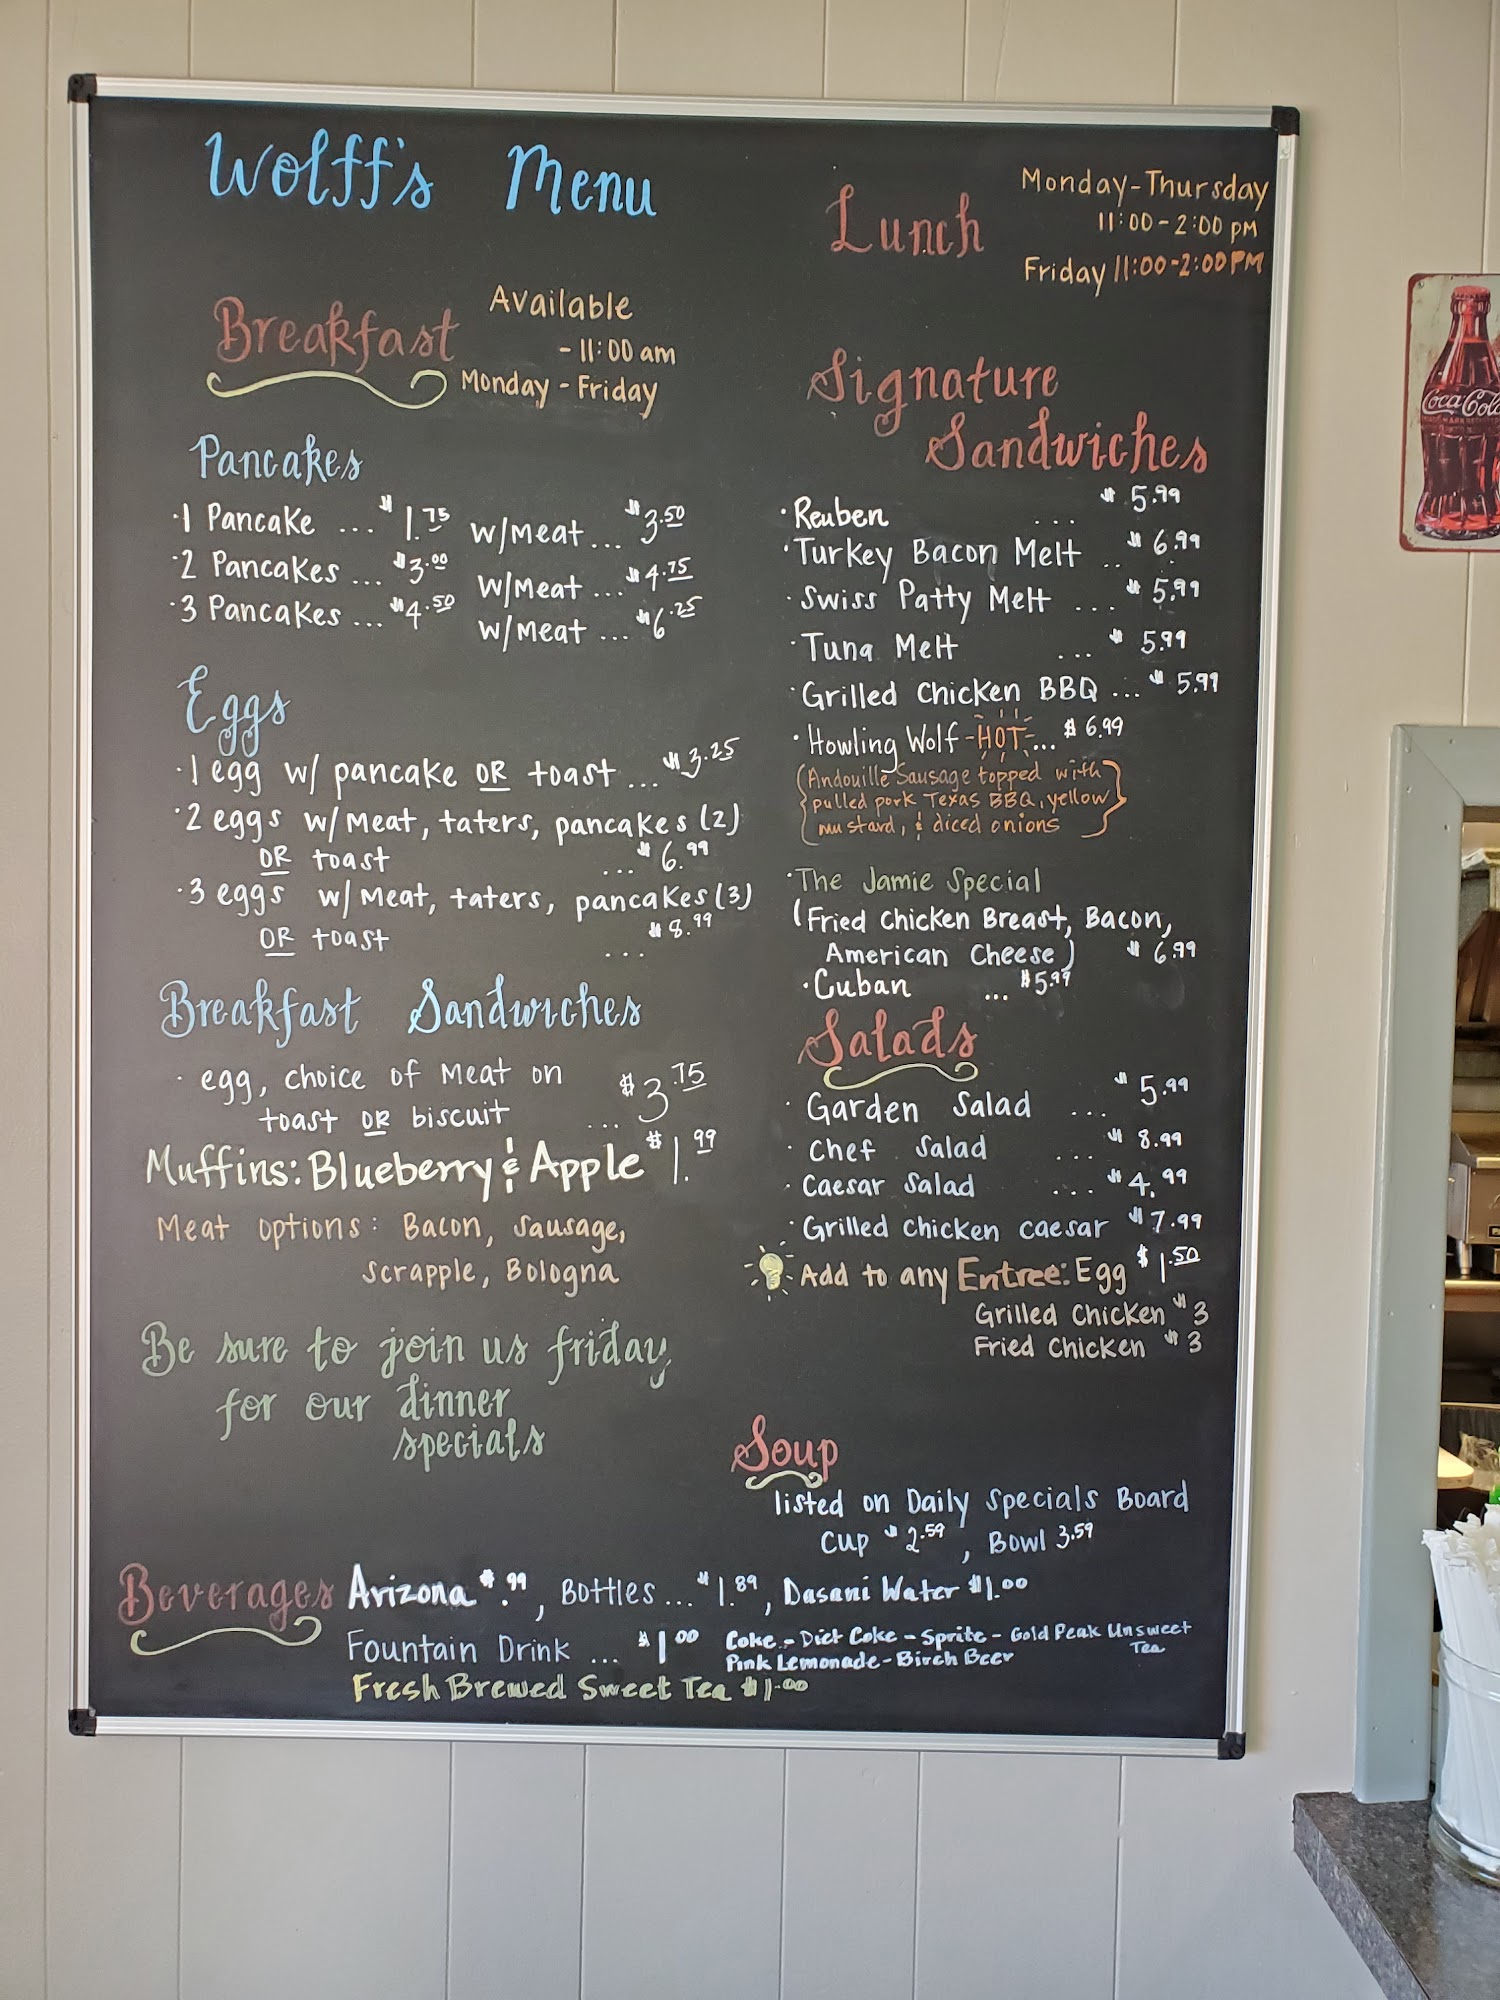 Wolff's Menu
Breakfast
Available
- 11:00 am
Monday - Friday
Pancakes
·1 Pancake ... $1.75 w/meat ... $3.50
·2 Pancakes ... $3.00 w/meat ... $4.75
·3 Pancakes ... $4.50 w/meat ... $6.25
Eggs
·1 egg w/ pancake OR toast ... $3.25
·2 eggs w/meat, taters, pancakes (2)
OR toast ... $6.99
·3 eggs w/meat, taters, pancakes (3)
OR toast ... $8.99
Breakfast Sandwiches
· egg, choice of meat on
toast OR biscuit ... $3.75
Muffins: Blueberry & Apple $1.99
Meat options: Bacon, sausage,
scrapple, Bologna
Be sure to join us friday
for our dinner
specials
Lunch
Monday-Thursday
11:00-2:00 pm
Friday 11:00-2:00PM
Signature
Sandwiches
·Reuben ... $5.99
·Turkey Bacon Melt .. $6.99
·Swiss Patty Melt ... $5.99
·Tuna Melt ... $5.99
·Grilled Chicken BBQ ... $5.99
·Howling Wolf -HOT-... $6.99
(Andouille Sausage topped with
pulled pork Texas BBQ, yellow
mustard, & diced onions)
·The Jamie Special
(Fried Chicken Breast, Bacon,
American Cheese) $6.99
·Cuban ... $5.99
Salads
· Garden Salad ... $5.99
· Chef Salad ... $8.99
· Caesar Salad ... $4.99
· Grilled chicken caesar $7.99
Add to any Entree: Egg $1.50
Grilled Chicken $3
Fried Chicken $3
Soup
listed on Daily Specials Board
Cup $2.59, Bowl 3.59
Beverages Arizona $.99, Bottles ... $1.89, Dasani Water $1.00
Fountain Drink ... $1.00 Coke - Diet Coke - Sprite - Gold Peak Unsweet Tea
Pink Lemonade - Birch Beer
Fresh Brewed Sweet Tea $1.00
Coca-Cola